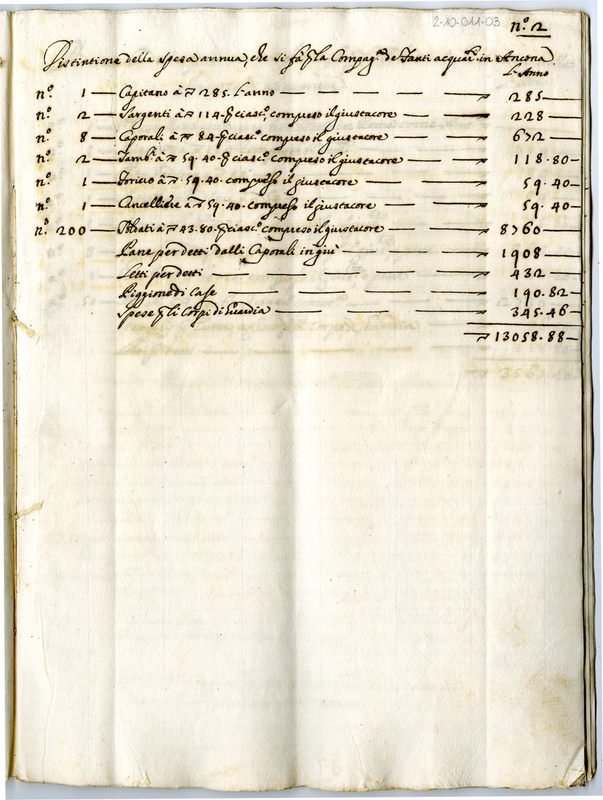 2-10-011-03
nº. 2
Distintione della spesa annua, che si fà p la Compagª. de Fanti acquarti. in Ancona
L'Anno
nº. 1 — Capitano à ∇ 285. L'anno — 285 —
nº. 2 — Sargenti à ∇ 114 - p ciascº. compreso il giustacore — 228 —
nº. 8 — Caporali à ∇ 84 - p ciascº. compreso il giustacore — 672 —
nº. 2 — Tambⁱ. à ∇ 59.40 - p ciascº. compreso il giustacore — 118.80 —
nº. 1 — Foriero à ∇ 59.40. compreso il giustacore — 59.40 —
nº. 1 — Cancelliere à ∇ 59.40. compreso il giustacore — 59.40 —
nº. 200 — Soldati à ∇ 43.80 - p ciascº. compreso il giustacore — 8760 —
Pane per detti dalli Caporali in giù — 1908 —
Letti per detti — 432 —
Piggione di Case — 190.82 —
Spese p li Corpi di Guardia — 345.46 —
∇ 13058.88 —